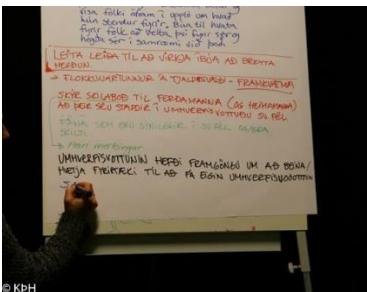 vísa fólki áfram í upplö um hvað
hún stendur fyrir. Búa til hvata
fyrir fólk að velta því fyrir sér og
hegða sér í samræmi við það
LEITA LEIÐA TIL AÐ VIRKJA ÍBÚA AÐ BREYTA
HEGÐUN.
→ FLOKKUNARTUNNUR Á TJALDSVÆÐI - FRAMKVÆMA
SKÝR SKILABOÐ TIL FERÐAMANNA (OG HEIMAMANNA)
AÐ ÞEIR SÉU STADDIR Í UMHVERFISVOTTUÐU SV.FÉL.
FÁNA SEM ERU SÝNILEGIR Í SV.FÉL OG/EÐA
SKILTI
→ Meiri merkingar
UMHVERFISVOTTUNIN HEFÐI FRAMGÖNGU UM AÐ BEINA/
HVETJA FYRIRTÆKI TIL AÐ FÁ EIGIN UMHVERFISVOTTUN
© KÞH